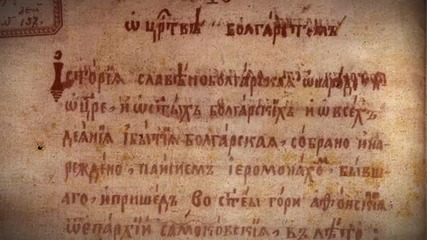 № 137.
ѡ црⷭ҇твѣ болгарстѣмъ
Исторїѧ славѣноболгарскаѧ ѡ народѣ
ѡ цре, и ѡ ст҃ыхъ болгарскихъ и ѡ всѣхъ
деанїѧ ї битїѧ болгарскаѧ, собрано и на
реждено, паисиемъ їеромонахомъ, бывш
аго, и пришедъ во ст҃ѣи гори аѳонскиѧ
ѿ епархїи самоковскиѧ, в лѣто